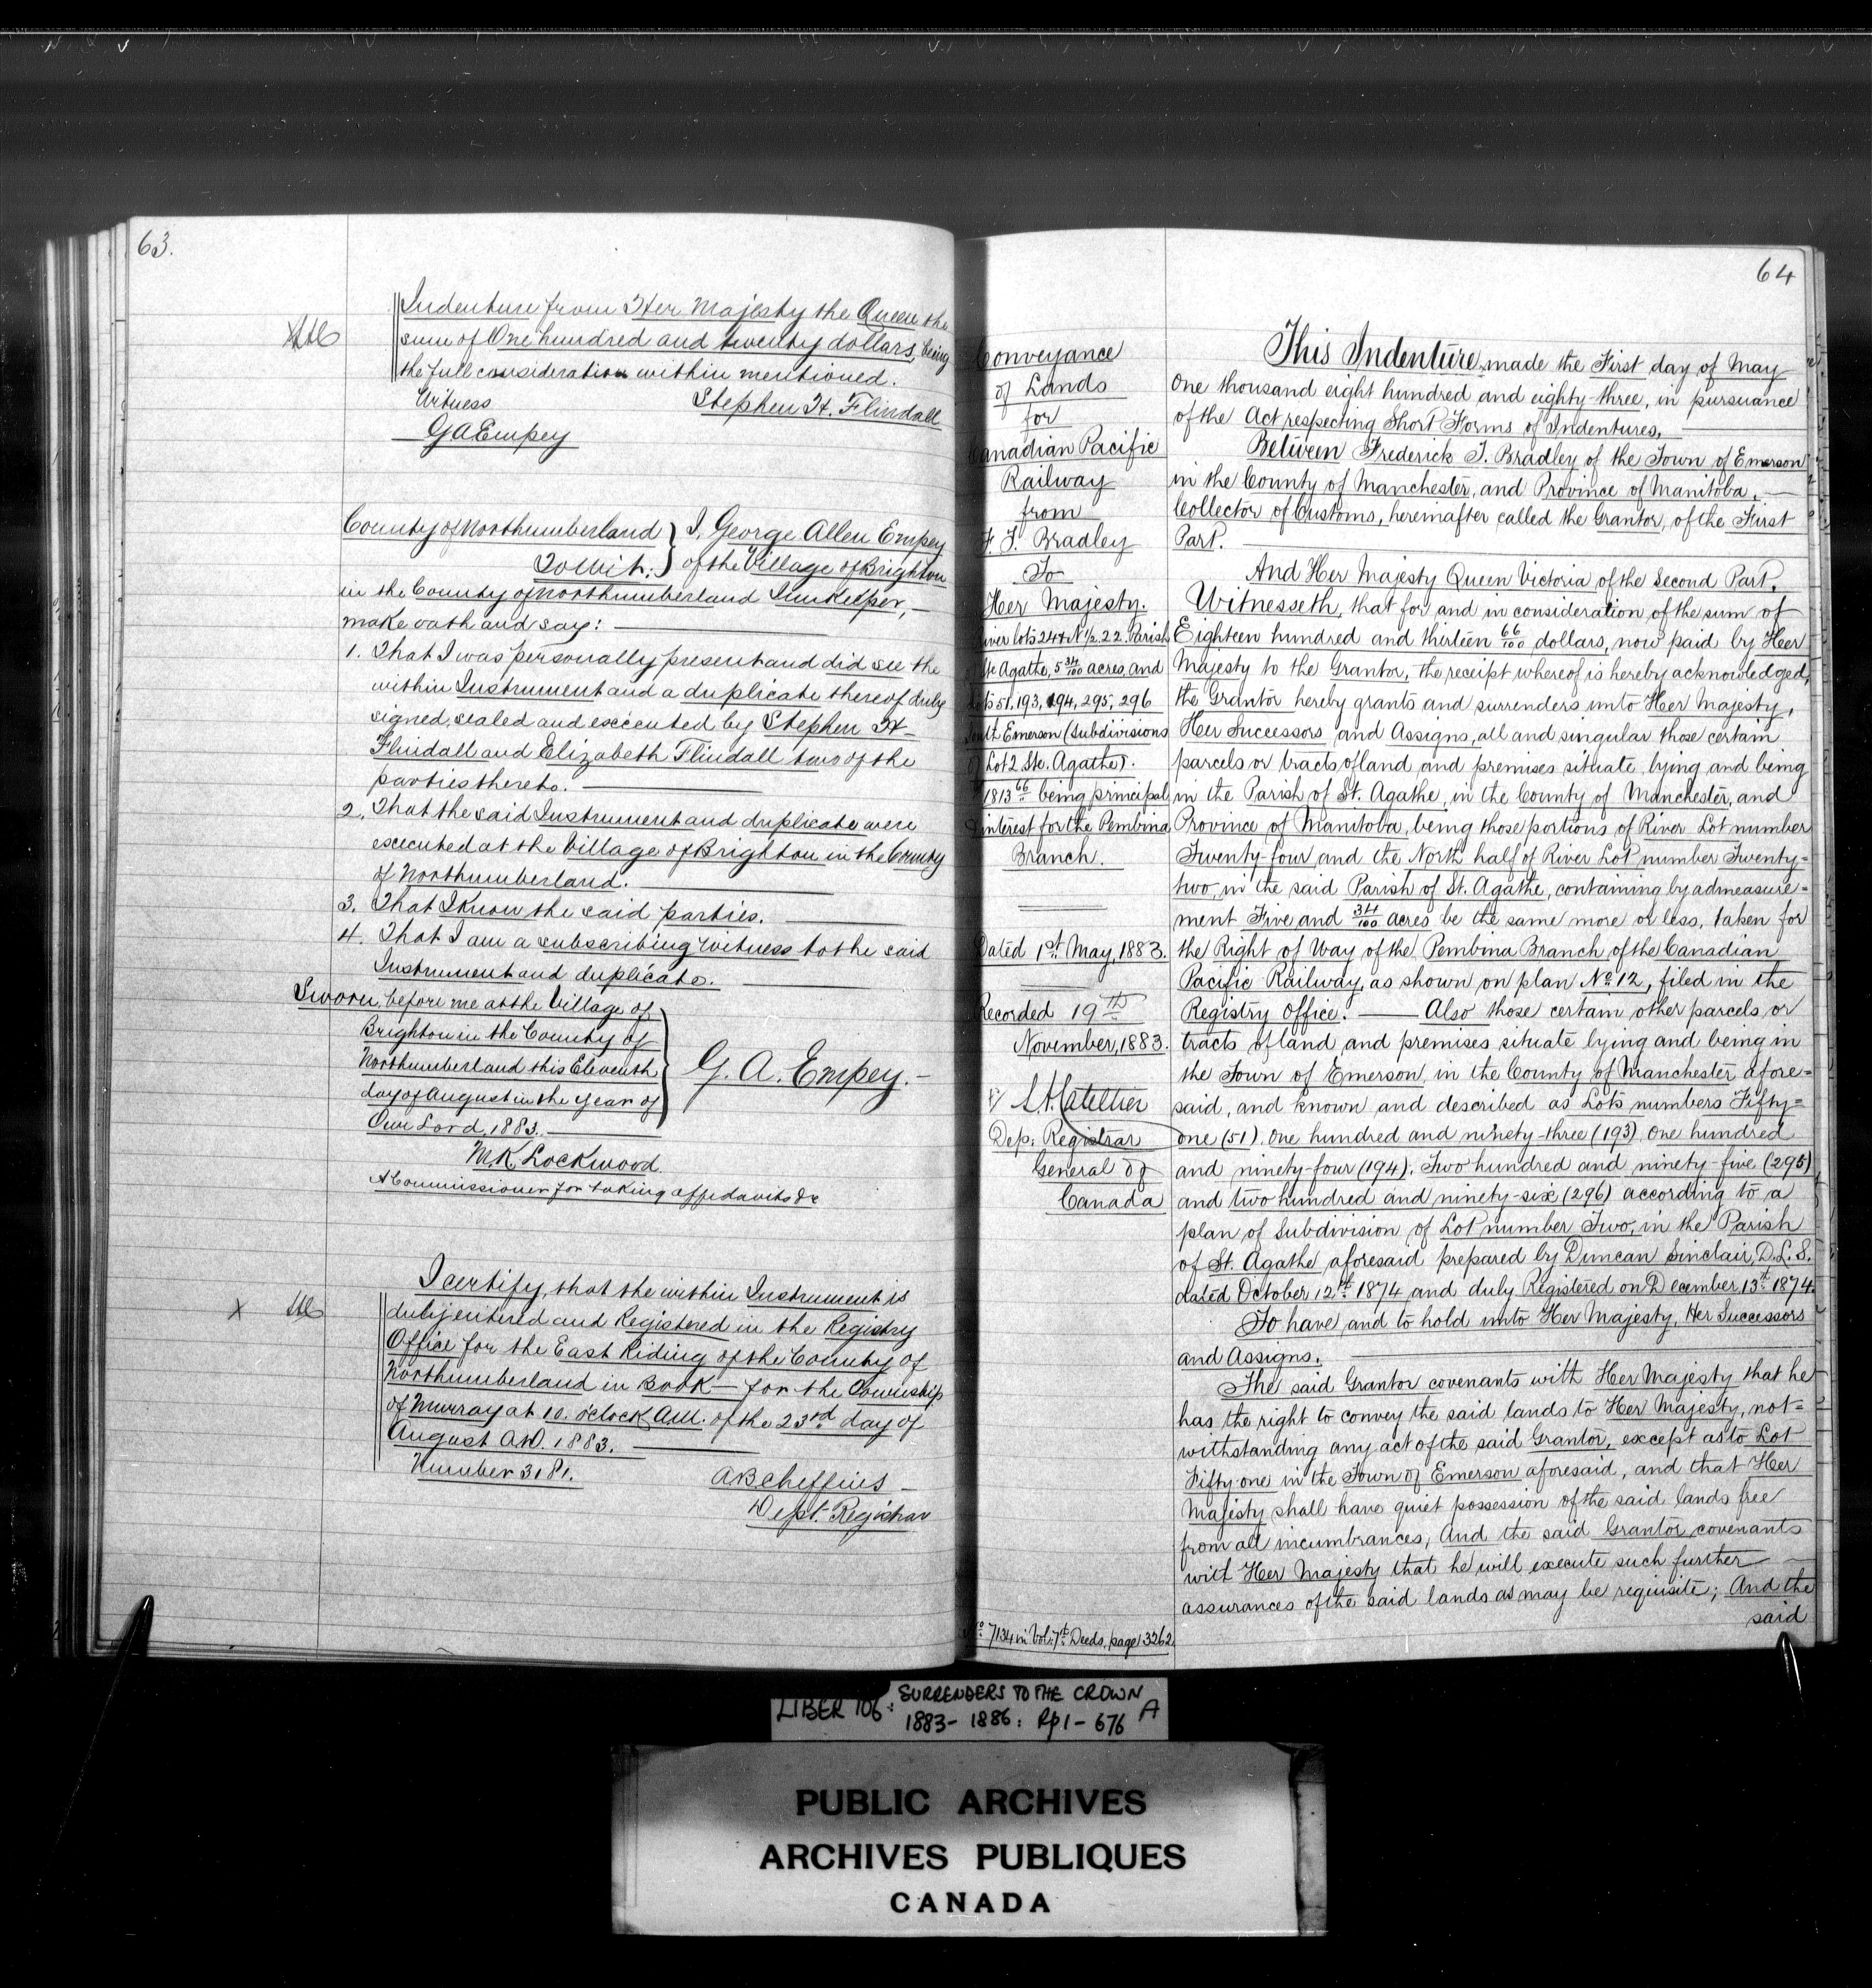 63.
Indenture from Her Majesty the Queen the
sum of One hundred and twenty dollars, being
the full consideration within mentioned.
Witness Stephen H. Flindall
G A Empey
County of Northumberland } I, George Allen Empey
To wit: } of the Village of Brighton
in the County of Northumberland Innkeeper,
make oath and say:
1. That I was personally present and did see the
within Instrument and a duplicate thereof duly
signed, sealed and executed by Stephen H
Flindall and Elizabeth Flindall two of the
parties thereto.
2. That the said Instrument and duplicate were
executed at the Village of Brighton in the County
of Northumberland.
3. That I know the said parties.
4. That I am a subscribing witness to the said
Instrument and duplicate.
Sworn before me at the Village of
Brighton in the County of
Northumberland this Eleventh
day of August in the year of
Our Lord, 1883.
G. A. Empey.
M. K. Lockwood
A Commissioner for taking affidavits &c
I certify, that the within Instrument is
duly entered and Registered in the Registry
Office for the East Riding of the County of
Northumberland in Book — for the Township
of Murray at 10. o'clock A.M. of the 23rd day of
August A.D. 1883.
Number 3181.
Dept. Registrar
64
Conveyance
of Lands
for
Canadian Pacific
Railway
from
F. T. Bradley
To
Her Majesty.
River lots 24 & N 1/2 22 Parish
Ste Agathe, 5 34/100 acres, and
Lots 51, 193, 194, 295, 296
South Emerson (Subdivisions
of Lot 2 Ste. Agathe).
$1813 66 being principal
& interest for the Pembina
Branch.
Dated 1st May, 1883.
Recorded 19th
November, 1883.
Dep. Registrar
General of
Canada
No 7134 in Vol: 7th Deeds, page 3262
This Indenture, made the First day of May
One thousand eight hundred and eighty-three, in pursuance
of the Act respecting Short Forms of Indentures,
Between Frederick T. Bradley of the Town of Emerson
in the County of Manchester, and Province of Manitoba,
Collector of Customs, hereinafter called the Grantor, of the First
Part.
And Her Majesty Queen Victoria of the Second Part.
Witnesseth, that for and in consideration of the sum of
Eighteen hundred and thirteen 66/100 dollars, now paid by Her
Majesty to the Grantor, the receipt whereof is hereby acknowledged,
the Grantor hereby grants and surrenders unto Her Majesty,
Her Successors and Assigns, all and singular those certain
parcels or tracts of land and premises situate, lying and being
in the Parish of St. Agathe, in the County of Manchester, and
Province of Manitoba, being those portions of River Lot number
Twenty-four, and the North half of River Lot number Twenty=
two, in the said Parish of St. Agathe, containing by admeasure=
ment Five and 34/100 acres be the same more or less, taken for
the Right of Way of the Pembina Branch of the Canadian
Pacific Railway, as shown on plan No. 12, filed in the
Registry Office. — Also those certain other parcels or
tracts of land, and premises situate lying and being in
the Town of Emerson, in the County of Manchester afore=
said, and known and described as Lots numbers Fifty=
one (51), One hundred and ninety-three (193) One hundred
and ninety-four (194), Two hundred and ninety-five (295)
and two hundred and ninety-six (296) according to a
plan of Subdivision of Lot number Two, in the Parish
of St. Agathe aforesaid prepared by Duncan Sinclair, D.L.S.
dated October 12th 1874 and duly Registered on December 13th 1874.
To have and to hold unto Her Majesty, Her Successors
and Assigns.
The said Grantor covenants with Her Majesty that he
has the right to convey the said lands to Her Majesty, not=
withstanding any act of the said Grantor, except as to Lot
Fifty one in the Town of Emerson aforesaid, and that Her
Majesty shall have quiet possession of the said lands free
from all incumbrances, And the said Grantor covenants
with Her Majesty that he will execute such further
assurances of the said lands as may be requisite; And the
said
LIBER 106: SURRENDERS TO THE CROWN
1883-1886: Rp 1-676 A
PUBLIC ARCHIVES
ARCHIVES PUBLIQUES
CANADA